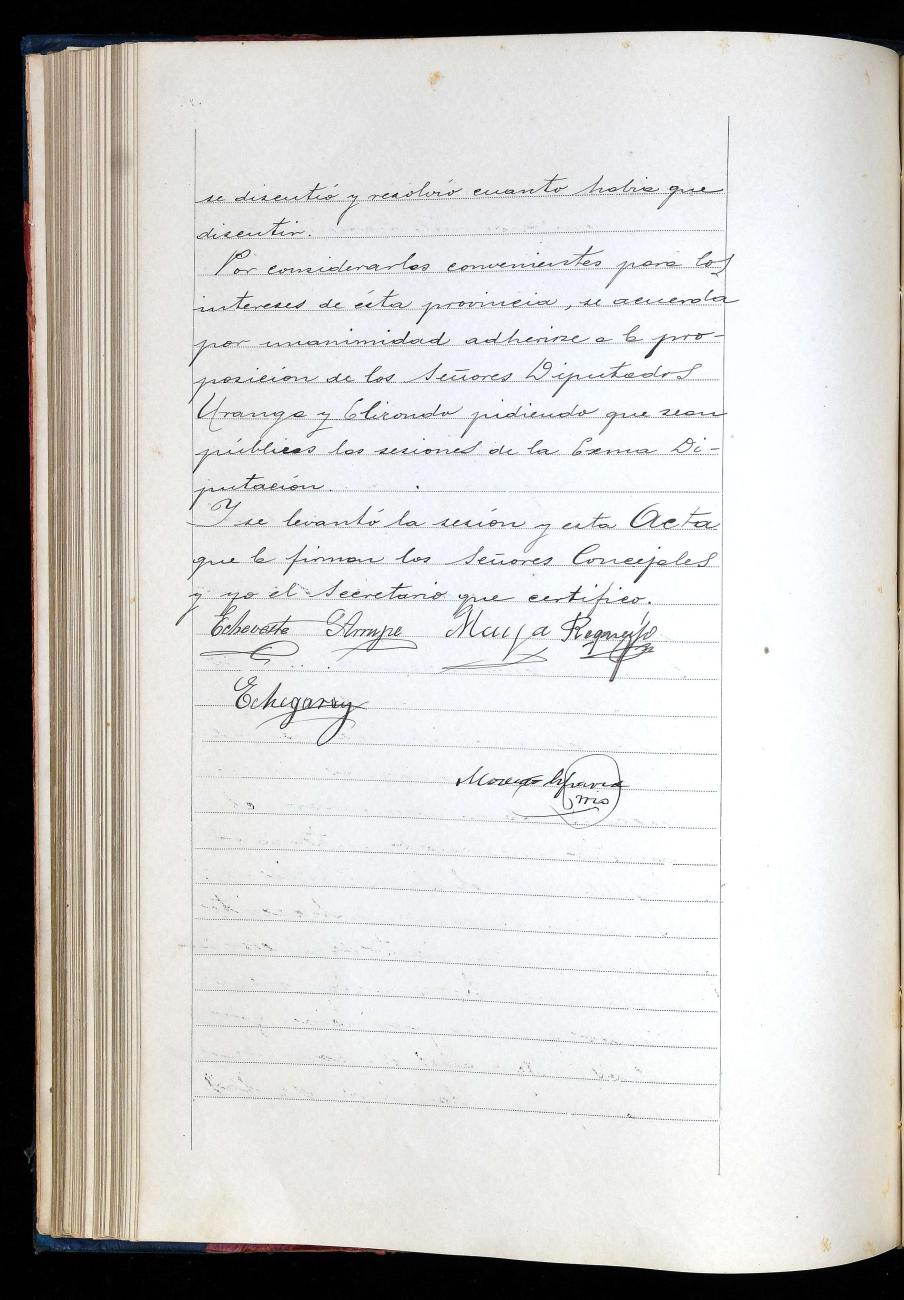 se discutió y resolvió cuanto habia que
discutir.
Por considerarlas convenientes para los
intereses de ésta provincia, se acuerda
por unanimidad adherirse a la pro-
posición de los Señores Diputados
Uranga y Elizondo pidiendo que sean
públicas las sesiones de la Exma Di-
putación.
Y se levantó la sesión y esta Acta
que la firman los Señores Concejales
y yo el Secretario que certifico.
Echavarte G Arrupe Maya Requejo
Echegaray